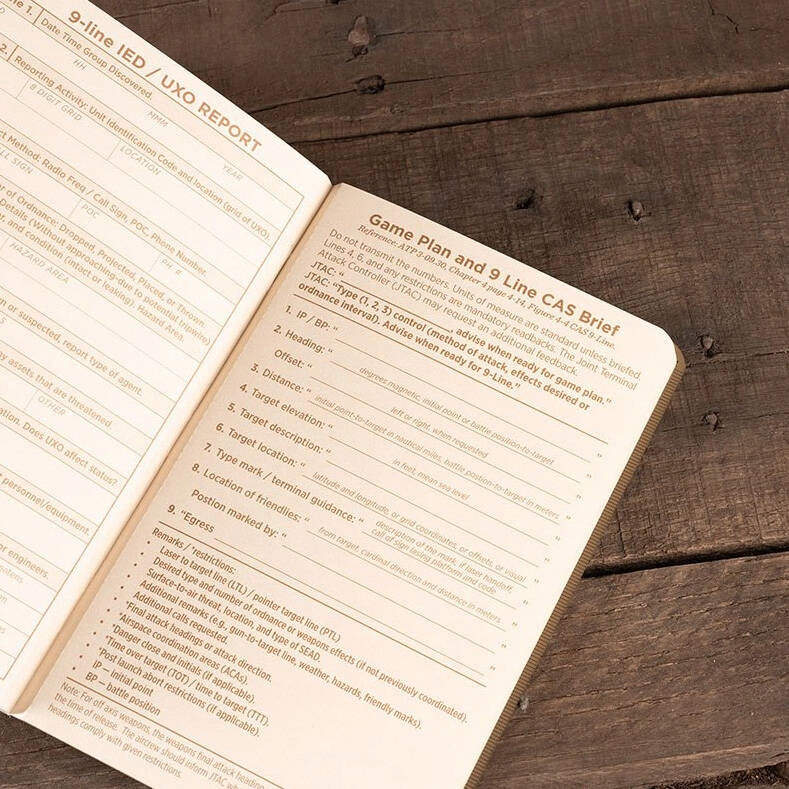 9-line IED / UXO REPORT
ne 1. Date Time Group Discovered.
HH MMM YEAR
2. Reporting Activity: Unit Identification Code and location (grid of UXO).
8 DIGIT GRID LOCATION
ct Method: Radio Freq / Call Sign, POC, Phone Number.
LL SIGN POC PH #
of Ordnance: Dropped, Projected, Placed, or Thrown.
Details (Without approaching-due to potential tripwire)
and condition (intact or leaking). Hazard Area.
HAZARD AREA
or suspected, report type of agent.
assets that are threatened
OTHER
Does UXO affect status?
personnel/equipment.
or engineers.
Game Plan and 9 Line CAS Brief
Reference: ATP 3-09.30, Chapter 4 page 4-14, Figure 4-4 CAS 9-Line.
Do not transmit the numbers. Units of measure are standard unless briefed.
Lines 4, 6, and any restrictions are mandatory readbacks. The Joint Terminal
Attack Controller (JTAC) may request an additional feedback.
JTAC: “ , advise when ready for game plan.”
JTAC: “Type (1, 2, 3) control (method of attack, effects desired or
ordnance interval). Advise when ready for 9-Line.”
1. IP / BP: “ ”
2. Heading: “ ”
degrees magnetic, initial point or battle position-to-target
Offset: “ ”
left or right, when requested
3. Distance: “ ”
initial point-to-target in nautical miles, battle postion-to-target in meters
4. Target elevation: “ ”
in feet, mean sea level
5. Target description: “ ”
6. Target location: “ ”
latitude and longitude, or grid coordinates, or offsets, or visual
7. Type mark / terminal guidance: “ ”
description of the mark, if laser handoff,
call of sign lasing platform and code
8. Location of friendlies: “ ”
from target, cardinal direction and distance in meters
Postion marked by: “ ”
9. “Egress ”
Remarks / *restrictions:
• Laser to target line (LTL) / pointer target line (PTL)
• Desired type and number of ordnance or weapons effects (if not previously coordinated).
• Surface-to-air threat, location, and type of SEAD.
• Additional remarks (e.g., gun-to-target line, weather, hazards, friendly marks).
• Additional calls requested.
• *Final attack headings or attack direction.
• *Airspace coordination areas (ACAs).
• *Danger close and initials (if applicable).
• *Time over target (TOT) / time to target (TTT).
• *Post launch abort restrictions (if applicable).
IP — initial point
BP — battle position
Note: For off axis weapons, the weapons final attack heading
the time of release. The aircrew should inform JTAC, wh
headings comply with given restrictions.